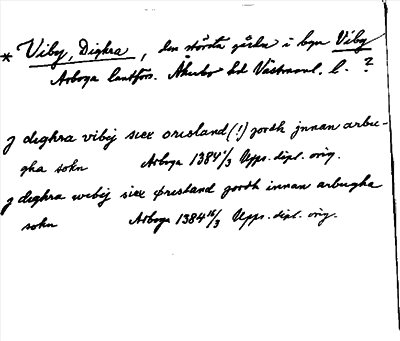 * Viby, Dighra, den största gården i byn Viby
Arboga landsförs. Åkerbo hd Västmanl. l. ?
j dighra vibij siex öresland (!) jordh jnnan arbu-
gha sokn Arboga 1384 1/3 Upps. dipl. orig.
j dighra wibij siex øresland jordh innan arbugha
sokn Arboga 1384 16/3 Upps. dipl. orig.